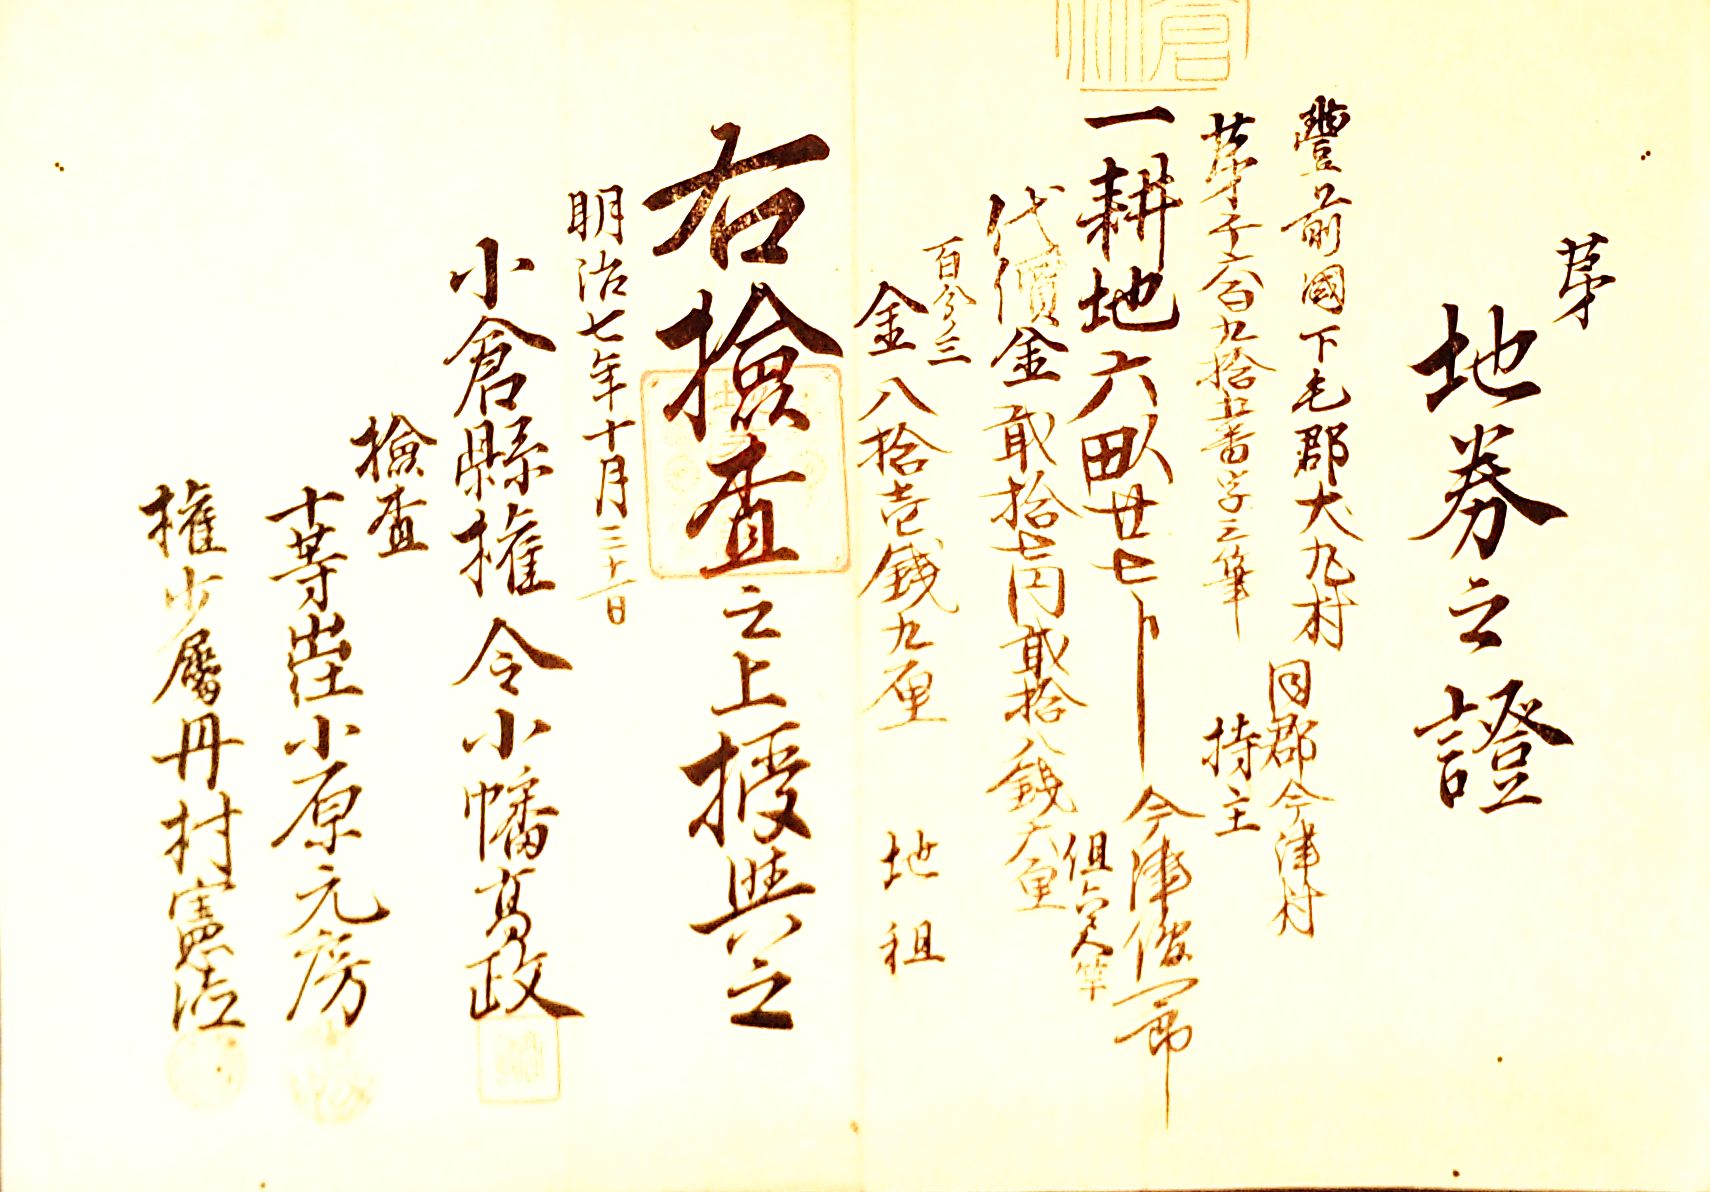 第
地券之證
豐前國下毛郡犬丸村
第千六百九拾五番字三筆
同郡今津村
持主
一耕地六畝廿七卜
今津俊一郎
但六尺竿
代價金貳拾七円貳拾八錢六厘
百分三
金八拾壱錢九厘
地租
右撿査之上授與之
明治七年十月三十一日
小倉縣權令小幡高政
撿査
十等出仕小原元房
權少屬丹村憲
倉